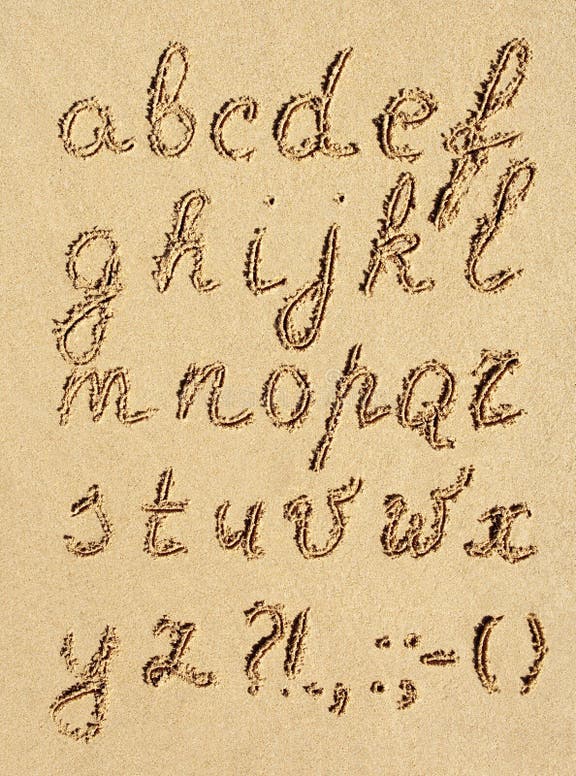 a b c d e f
g h i j k l
m n o p Q r
s t u v w x
y z ? ! . , : ; - ( )